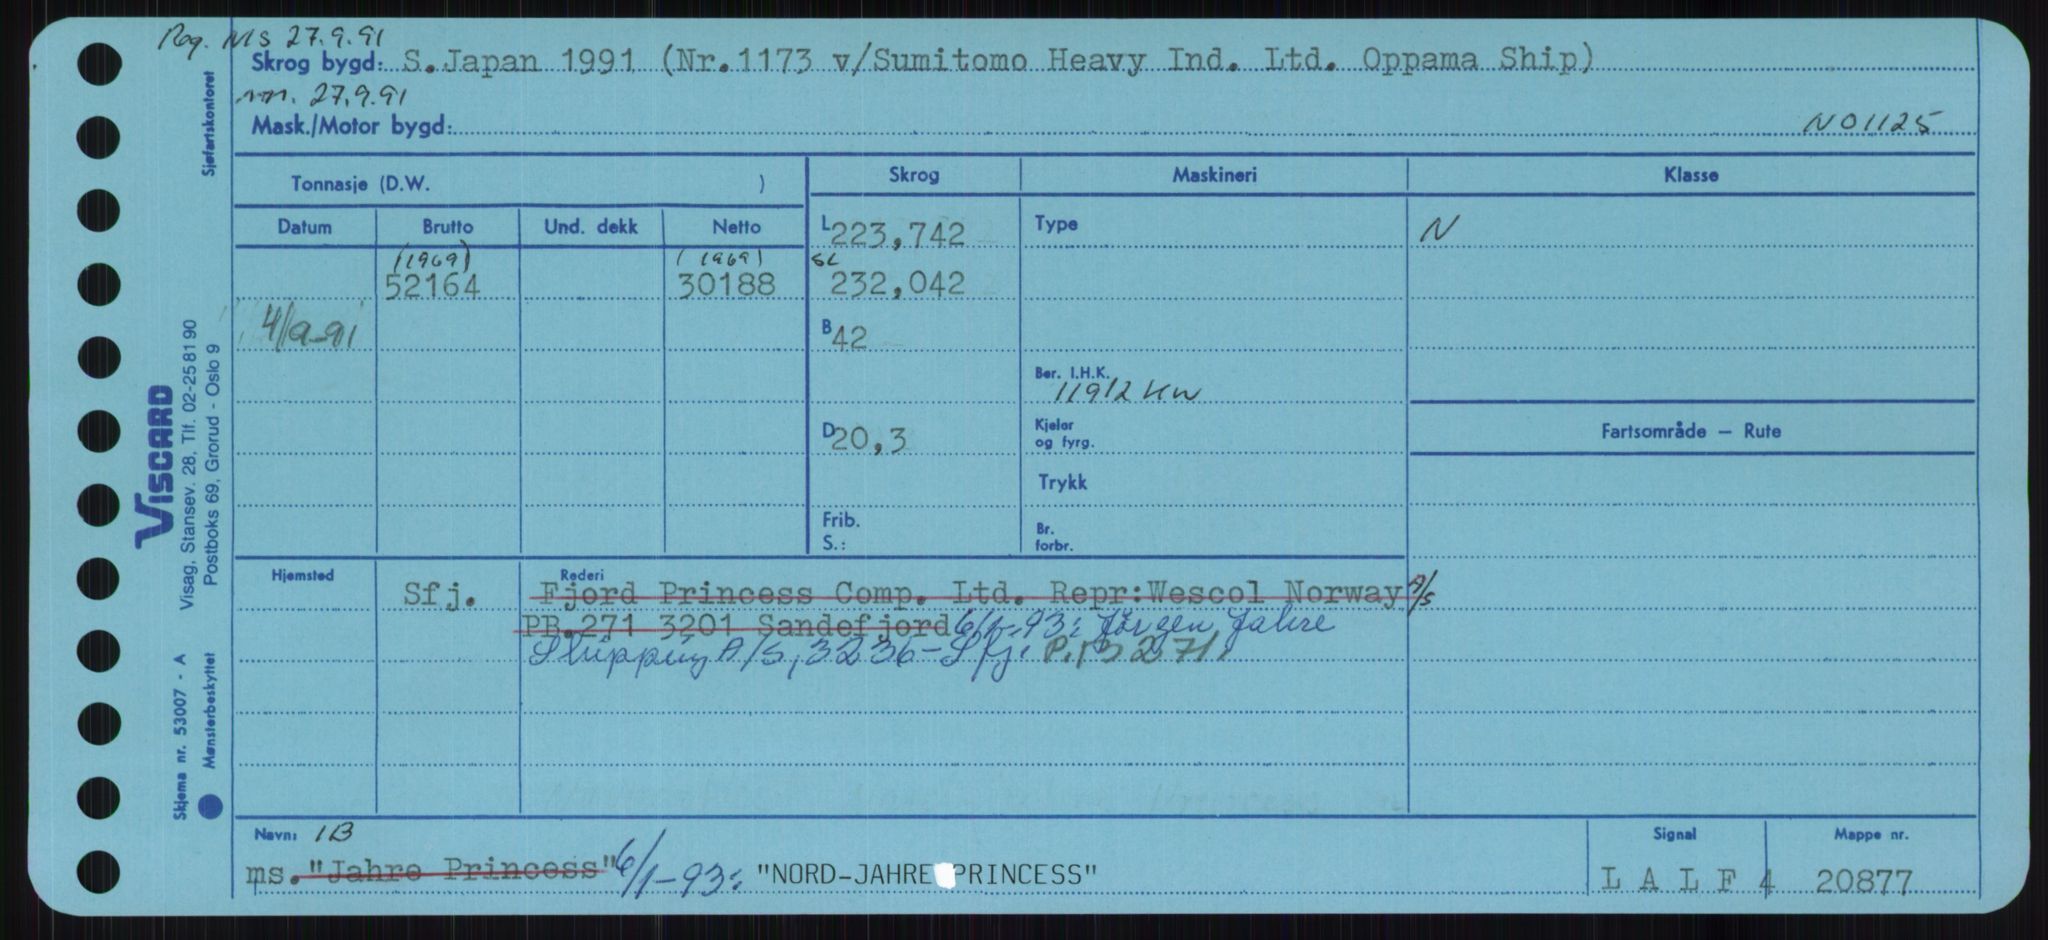 Reg. NIS 27.9.91
Skrog bygd: S.Japan 1991 (Nr.1173 v/Sumitomo Heavy Ind. Ltd. Oppama Ship)
mn. 27.9.91
Mask./Motor bygd: N01125
Tonnasje (D.W. ) Skrog Maskineri Klasse
Datum Brutto Und. dekk Netto L 223,742 Type N
(1969) (1969) SL
52164 30188 232,042
4/9-91 B 42
Ber. I.H.K.
11912 KW
D 20,3 Kjelar og fyrg. Fartsområde — Rute
Trykk
Frib. S.: Br. forbr.
Hjemsted Sfj. Rederi Fjord Princess Comp. Ltd. Repr:Wescol Norway A/S
PB.271 3201 Sandefjord 6/1-93: Jörgen Jahre
Shipping A/S, 3236-Sfj. P.B 271.
Navn: 1B Signal Mappe nr.
ms. "Jahre Princess" 6/1-93: "NORD-JAHRE PRINCESS" L A L F 4 20877
Sjøfartskontoret
VISCARD
Visag, Stansev. 28, Tlf. 02-25 81 90
Postboks 69, Grorud - Oslo 9
Skjema nr. 53007 - A
Mønsterbeskyttet